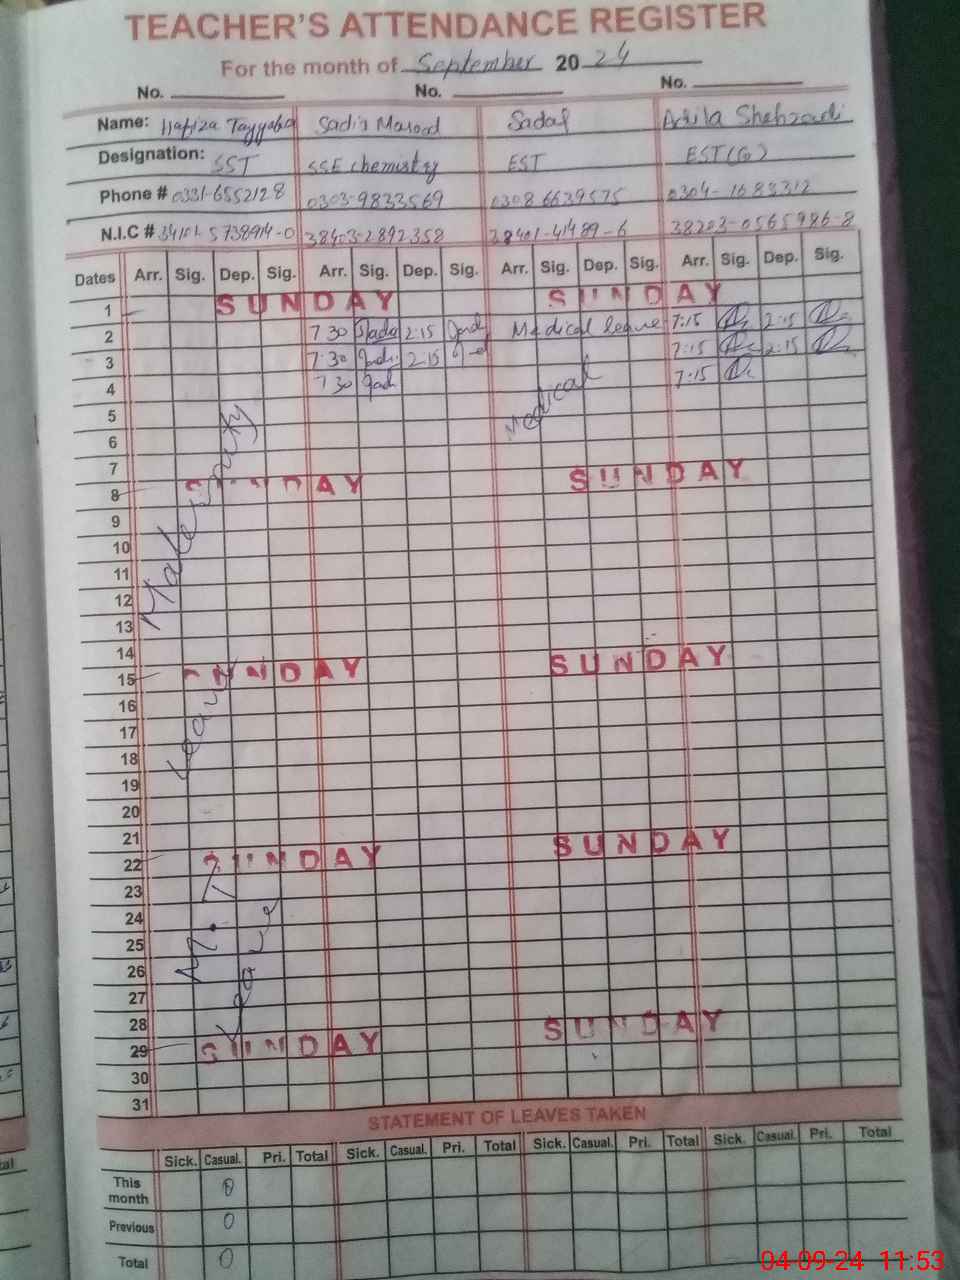 TEACHER'S ATTENDANCE REGISTER
For the month of September 2024
No. No. No.
Name: Hafiza Tayyaba Sadia Masood Sadaf Adila Shehzadi
Designation: SST SSE chemistry EST EST(G)
Phone # 0331-6552128 0303-9833569 0308 6639575 0304-1683312
N.I.C # 34101-5738914-0 38403-2892358 38401-41489-6 38203-0565986-8
Dates Arr. Sig. Dep. Sig. Arr. Sig. Dep. Sig. Arr. Sig. Dep. Sig. Arr. Sig. Dep. Sig.
1 SUNDAY SUNDAY
2 7 30 Sadia 2:15 Medical leave 7:15 2:15
3 7:30 2:15 7:15 2:15
4 7 30 Medical 7:15
5
6
7
8 SUNDAY SUNDAY
9
10
11
12
13
Maternity
14
15 SUNDAY SUNDAY
16
17
18
Leave
19
20
21
22 SUNDAY SUNDAY
23
24
25
26
M.T
Leave
27
28
29 SUNDAY SUNDAY
30
31
STATEMENT OF LEAVES TAKEN
Sick. Casual. Pri. Total Sick. Casual. Pri. Total Sick. Casual. Pri. Total Sick. Casual. Pri. Total
This month 0
Previous 0
Total 0
04-09-24 11:53